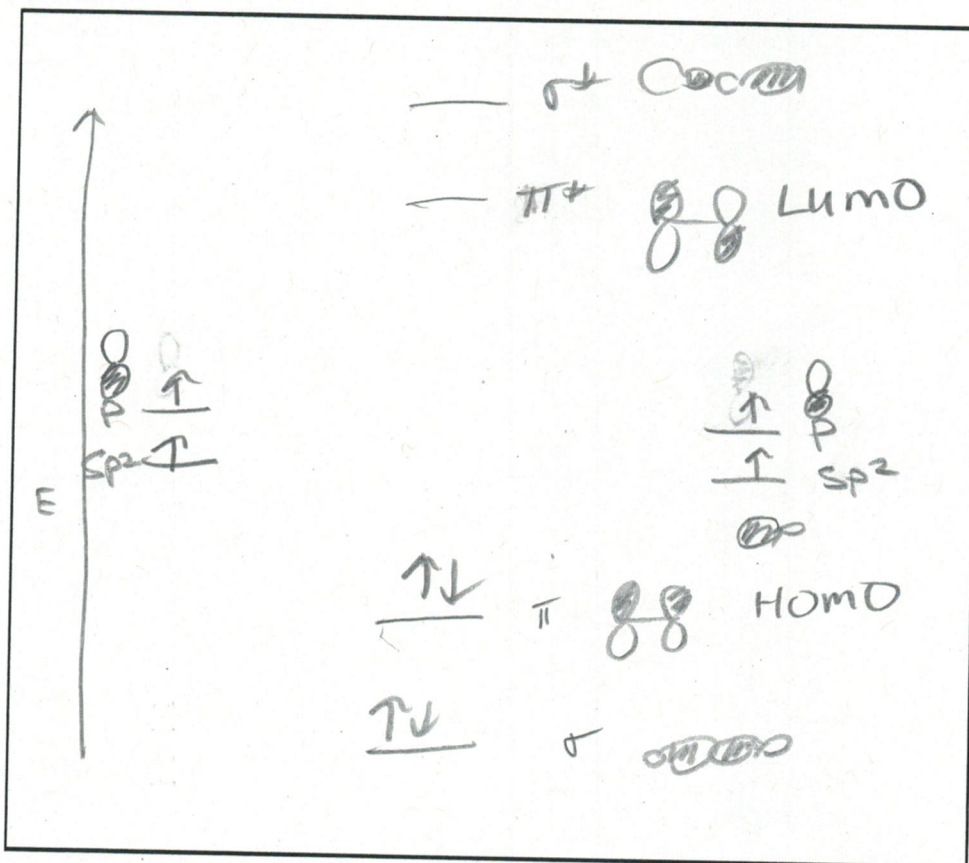 σ*
π* LUMO
P ↑ ↑ P
Sp² ↑ ↑ Sp²
E
↑↓ π HOMO
↑↓ σ